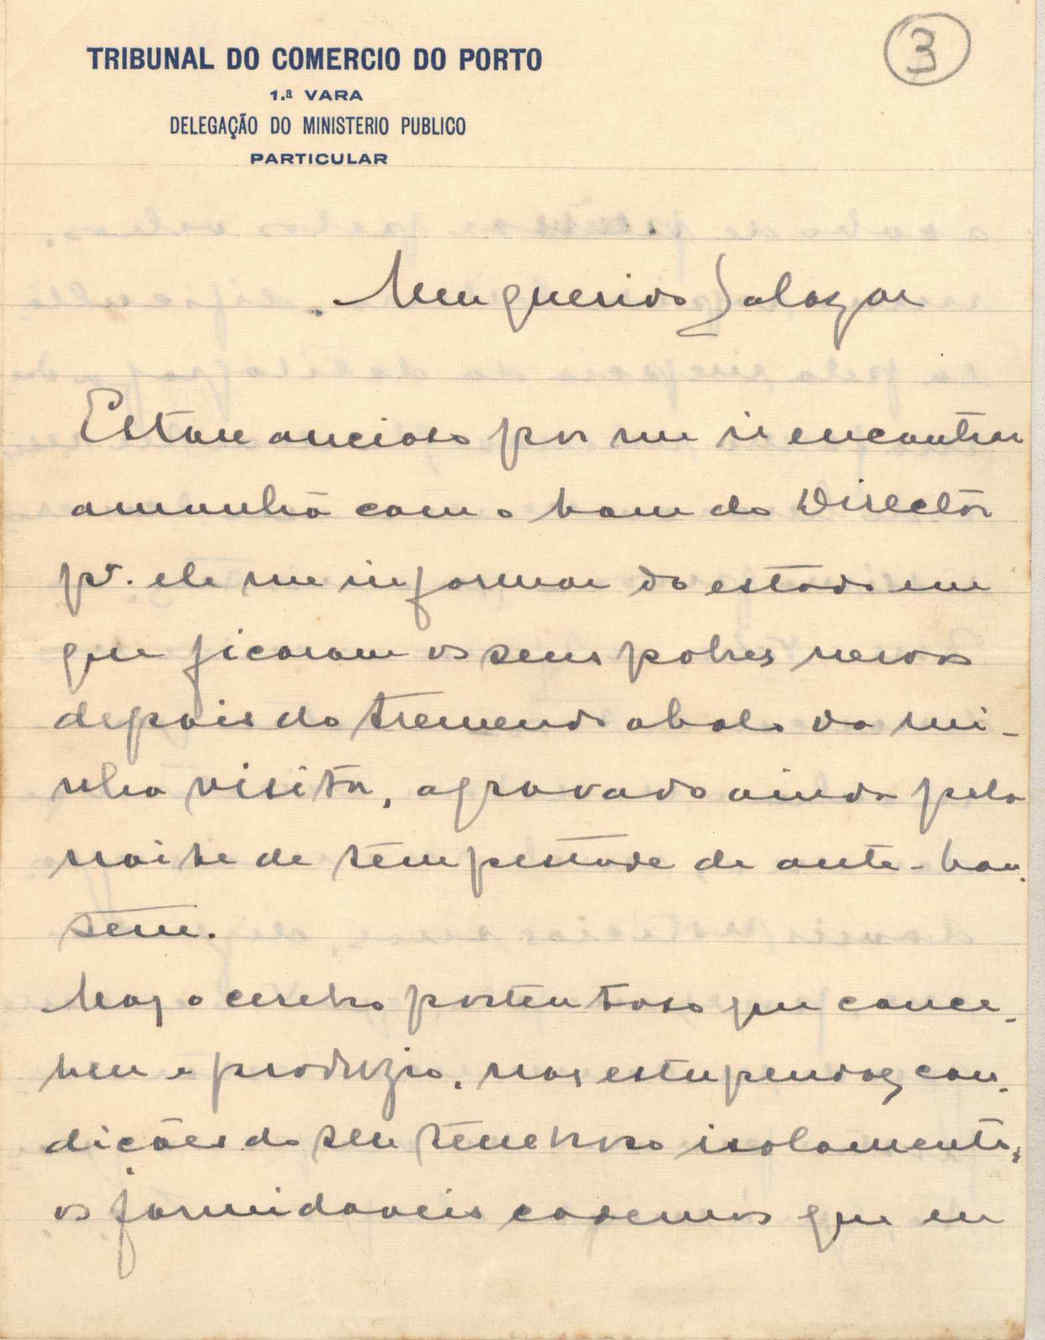 TRIBUNAL DO COMERCIO DO PORTO
1.ª VARA
DELEGAÇÃO DO MINISTERIO PUBLICO
PARTICULAR
3
Meu querido Salazar
Estou ancioso por me ir encontrar
amanhã com o bom do Director
pª. ele me informar do estado em
que ficaram os seus pobres nervos
depois do tremendo abalo da mi-
nha visita, agravado ainda pela
noite de tempestade de ante-hon-
tem.
Mas o cerebro portentoso que conce-
beu e produzio, nas estupendas con-
dições do seu tenebroso isolamento,
os formidaveis cadernos que eu